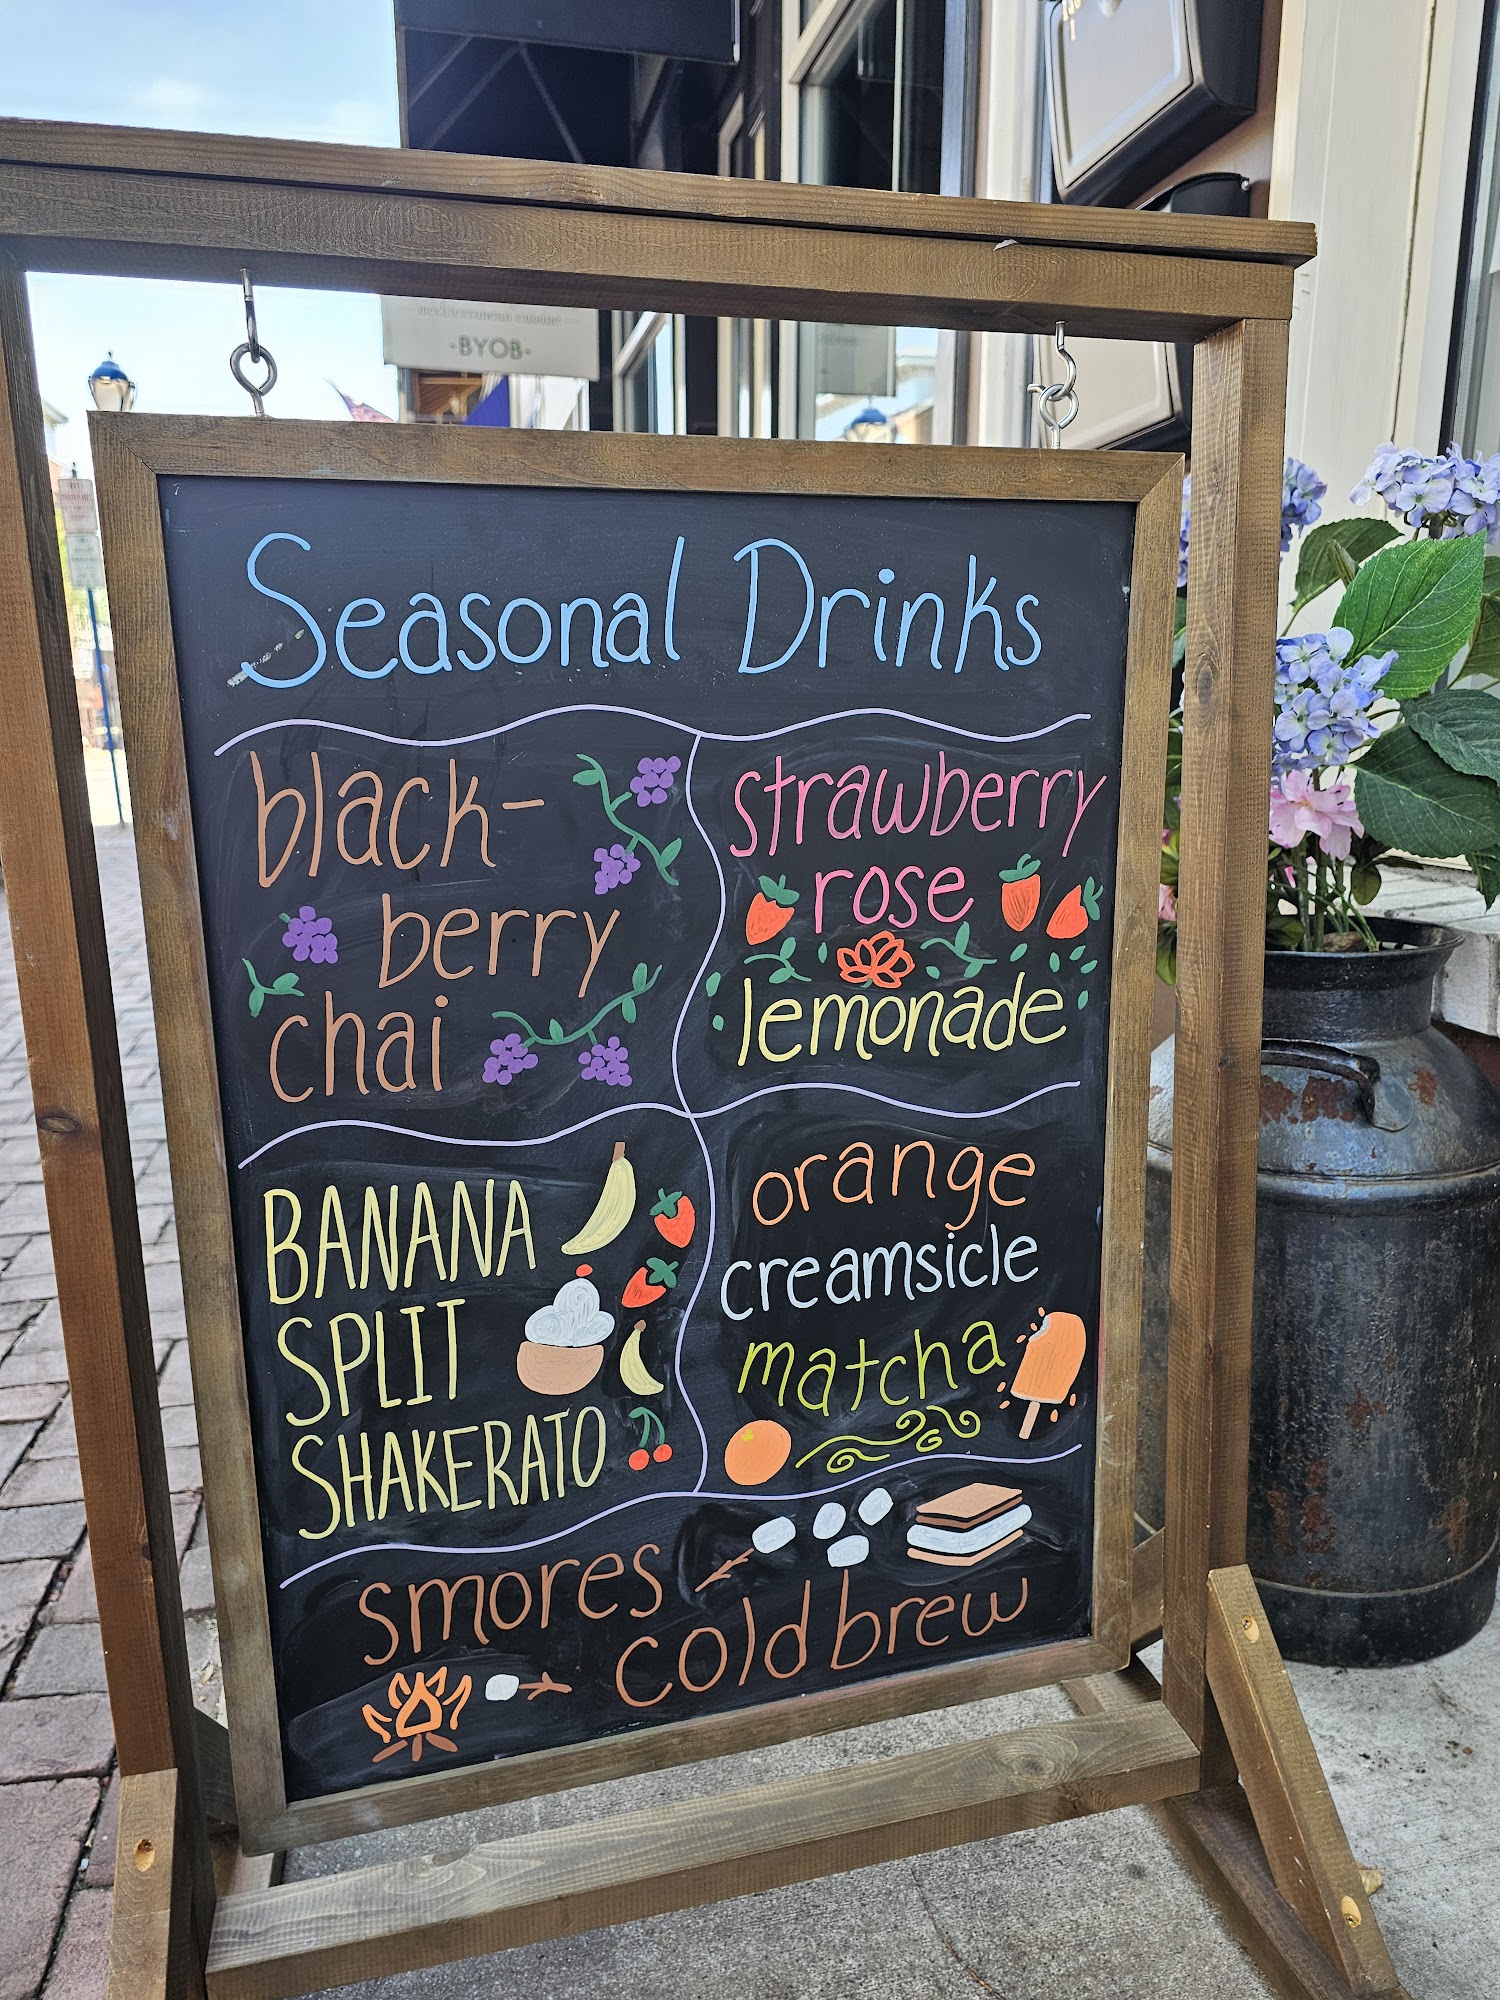 mediterranean cuisine
-BYOB-
Seasonal Drinks
black-
berry
chai
strawberry
rose
lemonade
BANANA
SPLIT
SHAKERATO
orange
creamsicle
matcha
smores
cold brew